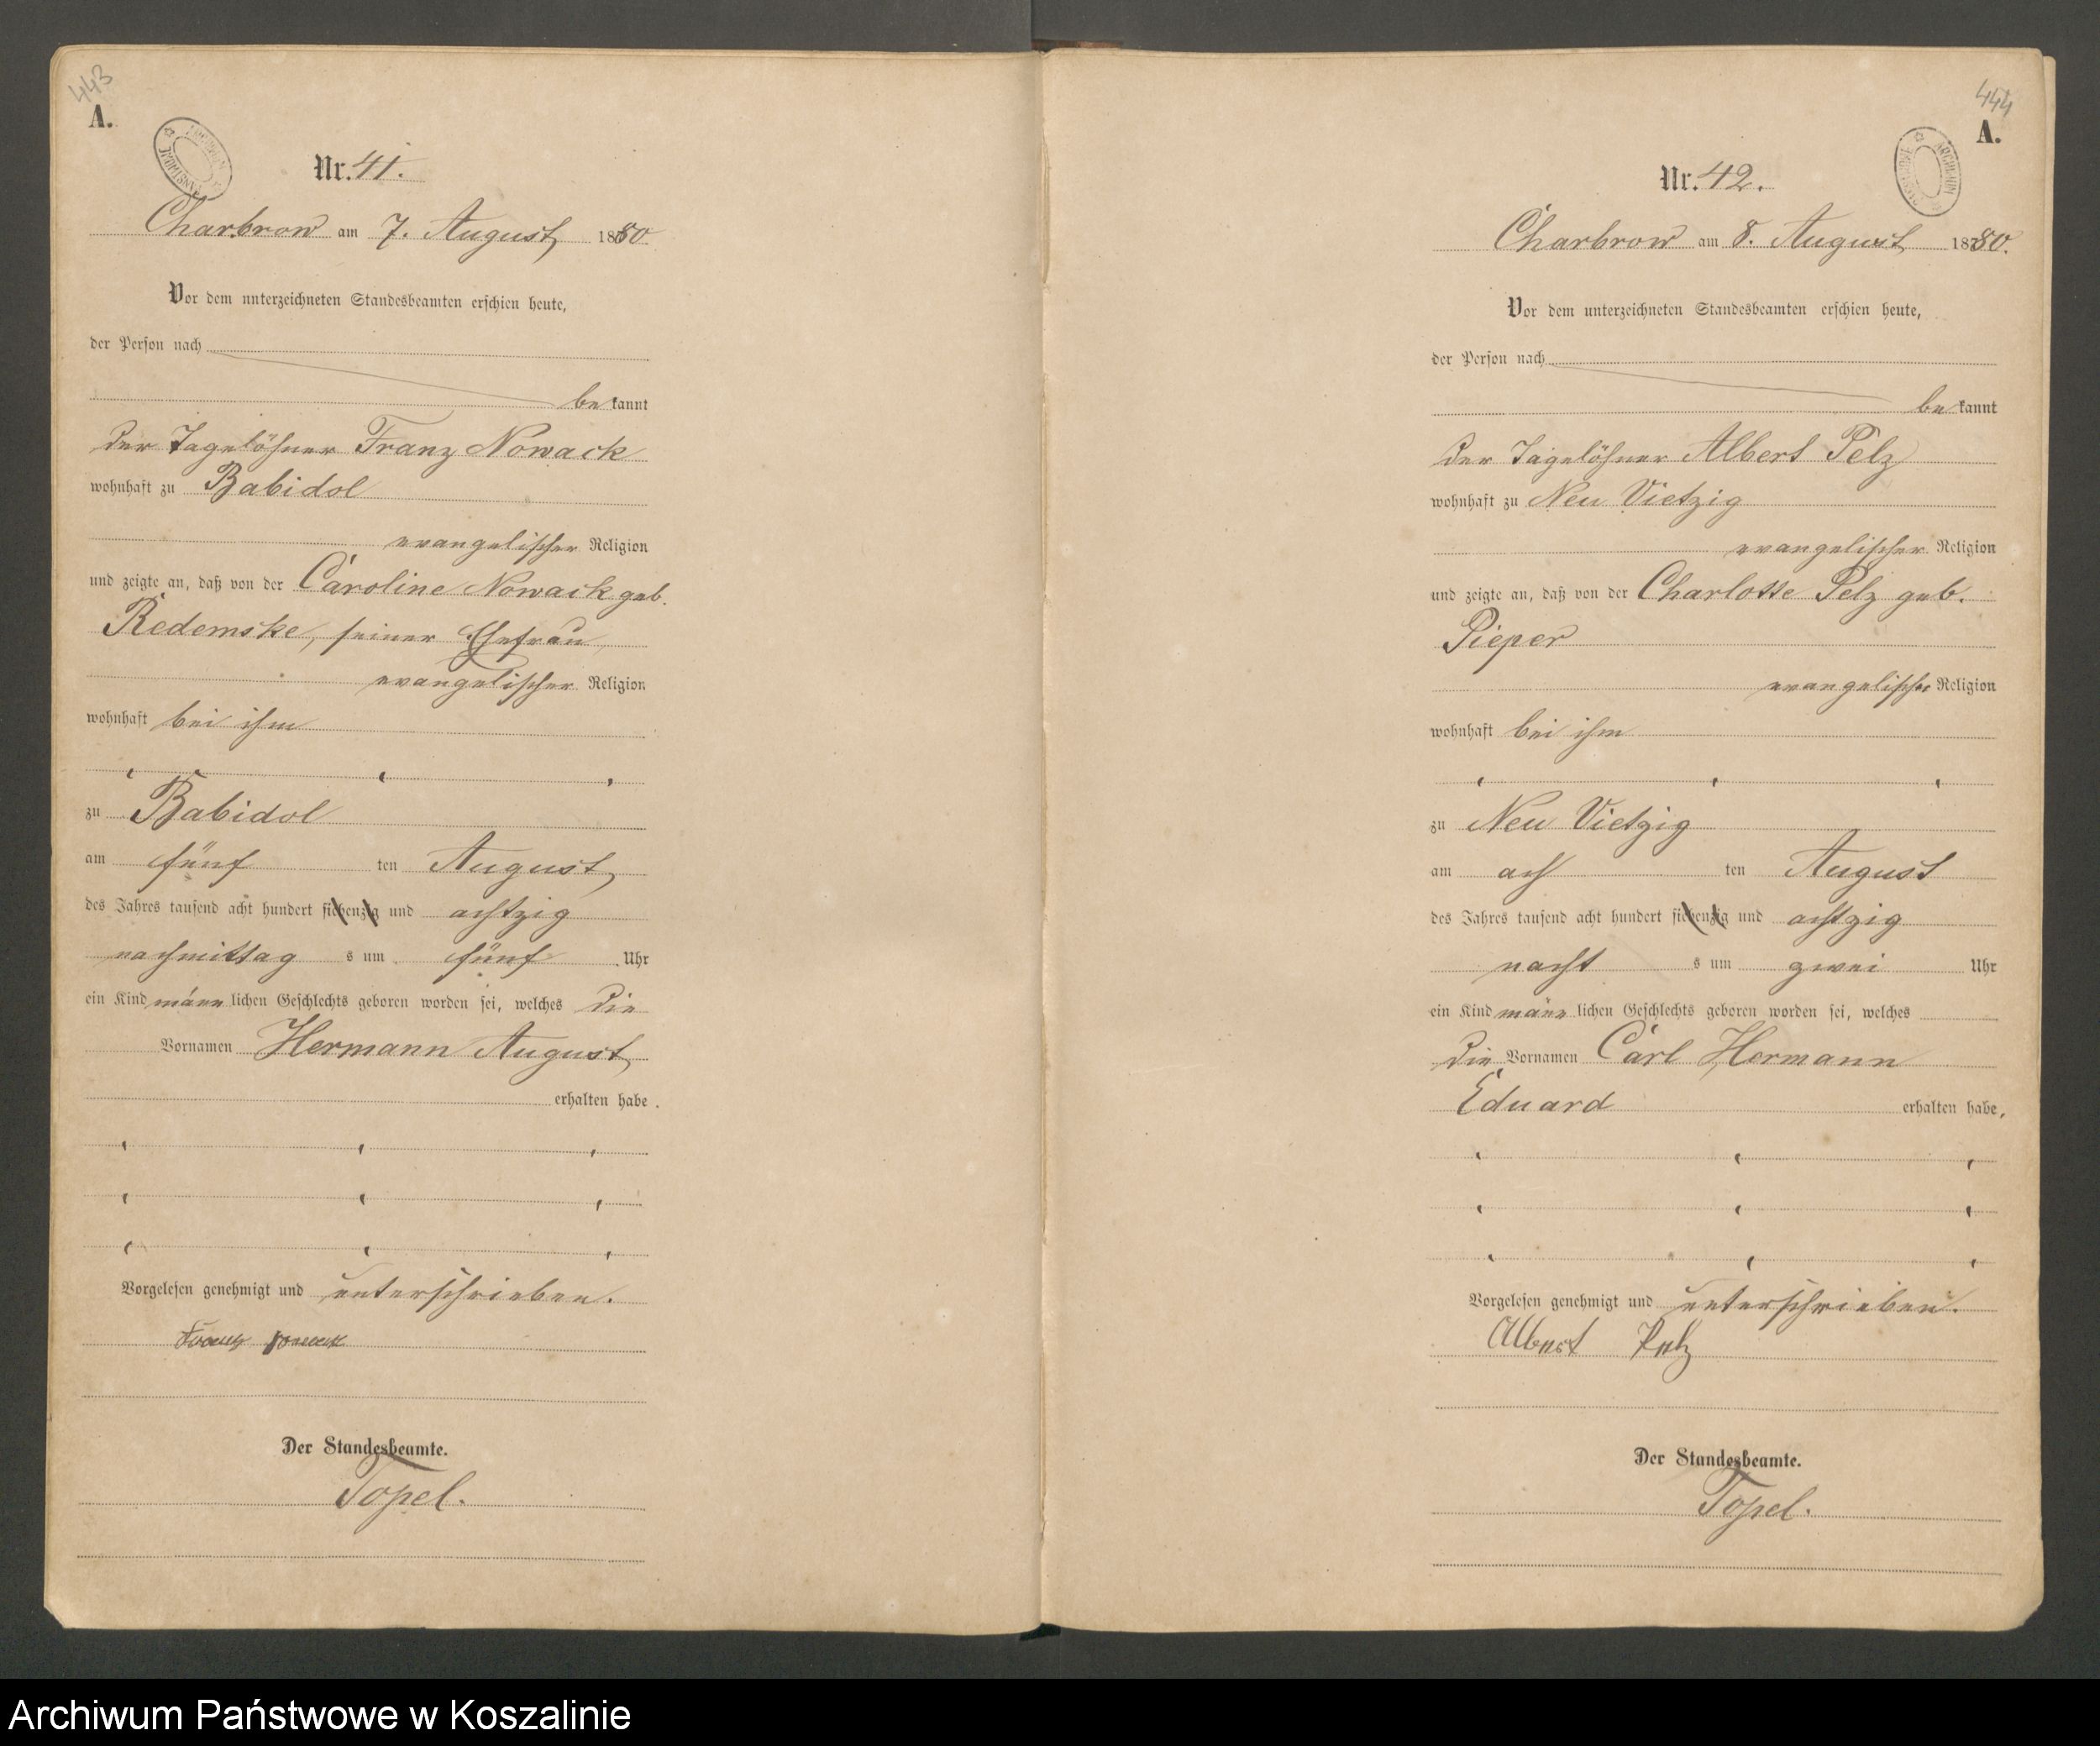 443
A.
ARCHIWUM PAŃSTWOWE
Nr. 41.
Charbrow am 7. August 1880.
Vor dem unterzeichneten Standesbeamten erschien heute,
der Person nach
bekannt
der Tagelöhner Franz Nowack
wohnhaft zu Babidol
evangelischer Religion
und zeigte an, daß von der Caroline Nowack geb.
Redemske, seiner Ehefrau,
evangelischer Religion
wohnhaft bei ihm
zu Babidol
am fünf ten August
des Jahres tausend acht hundert siebenzig und achtzig
nachmittag s um fünf Uhr
ein Kind männlichen Geschlechts geboren worden sei, welches die
Vornamen Hermann August
erhalten habe.
Vorgelesen genehmigt und unterschrieben.
Franz
Der Standesbeamte.
Topel.
444
A.
ARCHIWUM PAŃSTWOWE
Nr. 42.
Charbrow am 8. August 1880.
Vor dem unterzeichneten Standesbeamten erschien heute,
der Person nach
bekannt
der Tagelöhner Albert Pelz
wohnhaft zu Neu Vietzig
evangelischer Religion
und zeigte an, daß von der Charlotte Pelz geb.
Pieper
evangelischer Religion
wohnhaft bei ihm
zu Neu Vietzig
am ach ten August
des Jahres tausend acht hundert siebenzig und achtzig
nacht s um zwei Uhr
ein Kind männlichen Geschlechts geboren worden sei, welches
die Vornamen Carl Hermann
Eduard erhalten habe,
Vorgelesen genehmigt und unterschrieben.
Albert Pelz
Der Standesbeamte.
Topel.
Archiwum Państwowe w Koszalinie